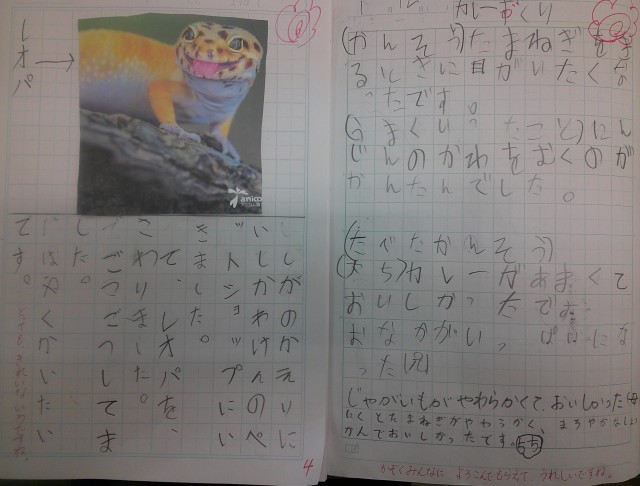 カレーづくり
(かんそう)たまねぎをき
るときに目がいたくな
ったです。
(うまくいったこと)にん
じんのかわをむくのが
かんたんでした。
(たべたかんそう)
カレーがあまくて
おいしかったです。
おなかがいっぱいにな
った(兄)
じゃがいもがやわらかくて、おいしかった(母
にくとたまねぎがやわらかく、まろやかなしょ
かんでおいしかったです。ちち
かぞくみんなに よろこんでもらえて うれしいですね。
レオパ→
anico
しがのかえりに
いしかわけんのペ
ットショップにい
きました。
て、レオパを
さわりました。
ごつごつしてま
した。
はやくかいたい
です。
とてもきれいないろですね。
4